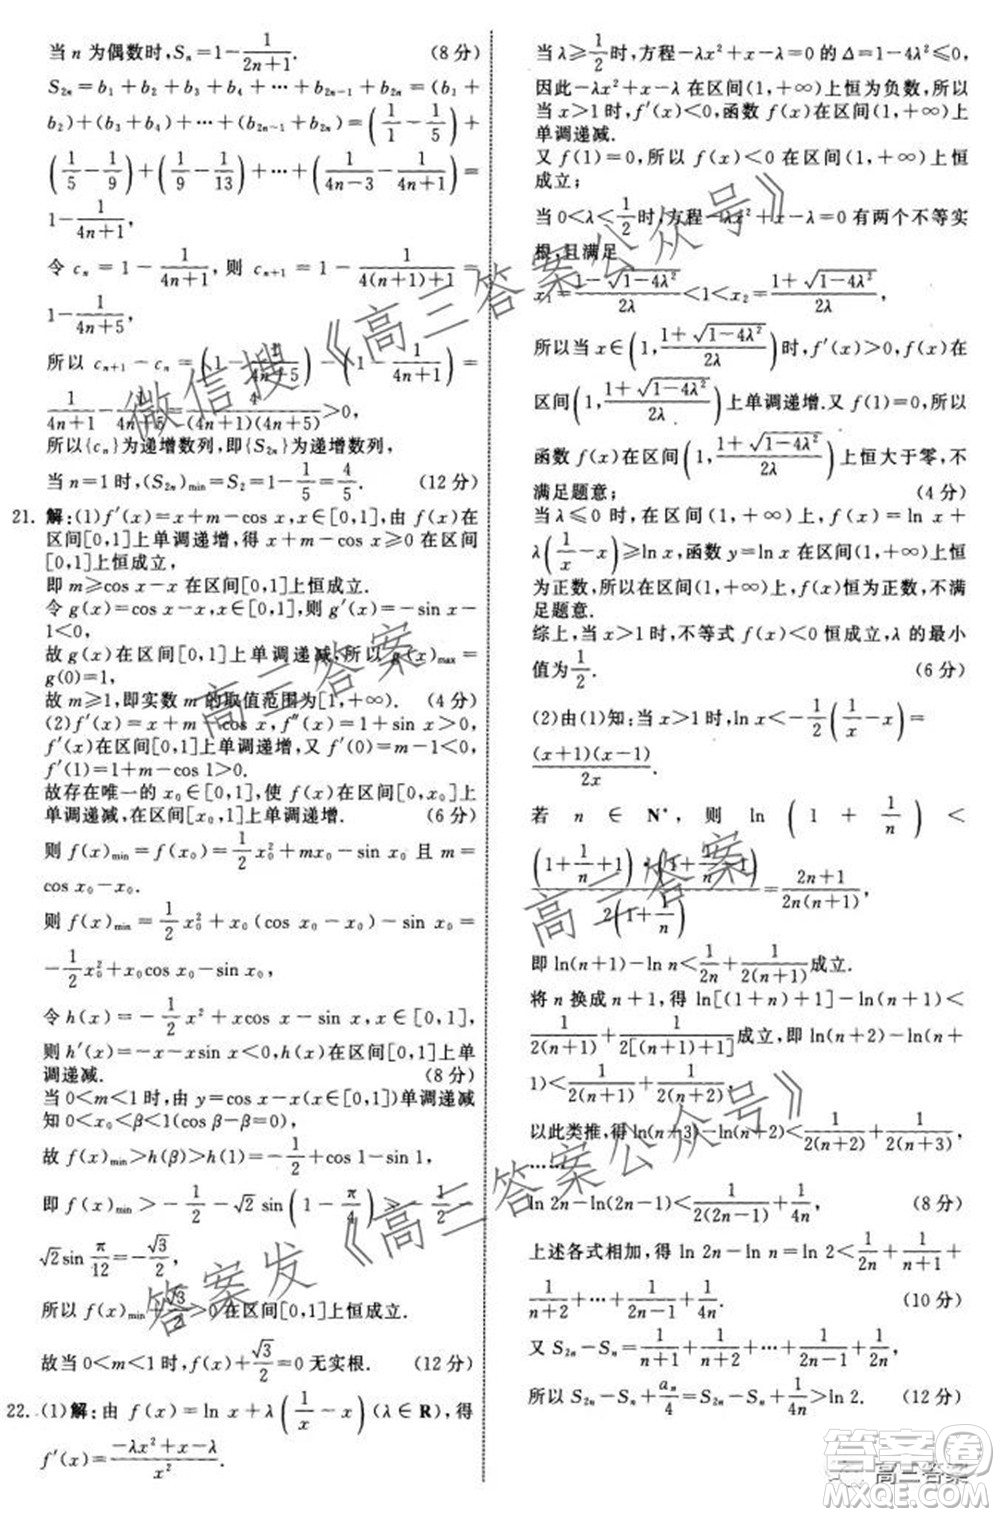 当 n 为偶数时,Sₙ=1-1/(2n+1). (8 分)
S₂ₙ=b₁+b₂+b₃+b₄+⋯+b₂ₙ₋₁+b₂ₙ=(b₁+
b₂)+(b₃+b₄)+⋯+(b₂ₙ₋₁+b₂ₙ)=(1/1-1/5)+
(1/5-1/9)+(1/9-1/13)+⋯+(1/(4n-3)-1/(4n+1))=
1-1/(4n+1),
令 cₙ=1-1/(4n+1), 则 cₙ₊₁=1-1/(4(n+1)+1)=
1-1/(4n+5),
所以 cₙ₊₁-cₙ=(1-1/(4n+5))-(1-1/(4n+1))=
1/(4n+1)-1/(4n+5)=4/((4n+1)(4n+5))>0,
所以{cₙ}为递增数列,即{S₂ₙ}为递增数列,
当 n=1 时,(S₂ₙ)min=S₂=1-1/5=4/5. (12 分)
21. 解:(1)f′(x)=x+m-cos x,x∈[0,1],由 f(x)在
区间[0,1]上单调递增,得 x+m-cos x≥0 在区间
[0,1]上恒成立,
即 m≥cos x-x 在区间[0,1]上恒成立.
令 g(x)=cos x-x,x∈[0,1],则 g′(x)=-sin x
-1<0,
故 g(x)在区间[0,1]上单调递减,所以 g(x)max=
g(0)=1,
故 m≥1,即实数 m 的取值范围为[1,+∞). (4 分)
(2)f′(x)=x+m-cos x,f″(x)=1+sin x>0,
f′(x)在区间[0,1]上单调递增,又 f′(0)=m-1<0,
f′(1)=1+m-cos 1>0.
故存在唯一的 x₀∈[0,1],使 f(x)在区间[0,x₀]上单
调递减,在区间[x₀,1]上单调递增. (6 分)
则 f(x)min=f(x₀)=1/2x₀²+mx₀-sin x₀ 且 m=
cos x₀-x₀.
则 f(x)min=1/2x₀²+x₀(cos x₀-x₀)-sin x₀=
-1/2x₀²+x₀cos x₀-sin x₀,
令 h(x)=-1/2x²+xcos x-sin x,x∈[0,1],
则 h′(x)=-x-xsin x<0,h(x)在区间[0,1]上单
调递减. (8 分)
当 0<m<1 时,由 y=cos x-x(x∈[0,1])单调递减
知 0<x₀<β<1(cos β-β=0),
故 f(x)min>h(β)>h(1)=-1/2+cos 1-sin 1,
即 f(x)min>-1/2-√2sin(1-π/4)>-1/2-
√2sin π/12=-√3/2,
所以 f(x)min+√3/2>0 在区间[0,1]上恒成立.
故当 0<m<1 时,f(x)+√3/2=0 无实根. (12 分)
22. (1)解:由 f(x)=ln x+λ(1/x-x)(λ∈R),得
f′(x)=(-λx²+x-λ)/x².
当 λ≥1/2时,方程-λx²+x-λ=0 的 Δ=1-4λ²≤0,
因此-λx²+x-λ 在区间(1,+∞)上恒为负数,所以
当 x>1 时,f′(x)<0,函数 f(x)在区间(1,+∞)上
单调递减.
又 f(1)=0,所以 f(x)<0 在区间(1,+∞)上恒
成立;
当 0<λ<1/2时,方程-λx²+x-λ=0 有两个不等实
根,且满足
x₁=(1-√(1-4λ²))/2λ<1<x₂=(1+√(1-4λ²))/2λ,
所以当 x∈(1,(1+√(1-4λ²))/2λ)时,f′(x)>0,f(x)在
区间(1,(1+√(1-4λ²))/2λ)上单调递增.又 f(1)=0,所以
函数 f(x)在区间(1,(1+√(1-4λ²))/2λ)上恒大于零,不
满足题意; (4 分)
当 λ≤0 时,在区间(1,+∞)上,f(x)=ln x+
λ(1/x-x)≥ln x,函数 y=ln x 在区间(1,+∞)上恒
为正数,所以在区间(1,+∞)上 f(x)恒为正数,不满
足题意.
综上,当 x>1 时,不等式 f(x)<0 恒成立,λ 的最小
值为1/2. (6 分)
(2)由(1)知:当 x>1 时,ln x<-1/2(1/x-x)=
(x+1)(x-1)/2x.
若 n∈N*, 则 ln(1+1/n)<
(1+1/n+1)·(1+1/n-1)/2(1+1/n)=(2n+1)/(2n(n+1)),
即 ln(n+1)-ln n<1/2n+1/(2(n+1))成立.
将 n 换成 n+1,得 ln[(1+n)+1]-ln(n+1)<
1/(2(n+1))+1/(2[(n+1)+1])成立,即 ln(n+2)-ln(n+
1)<1/(2(n+1))+1/(2(n+2)),
以此类推,得 ln(n+3)-ln(n+2)<1/(2(n+2))+1/(2(n+3)),
……
ln 2n-ln(2n-1)<1/(2(2n-1))+1/4n, (8 分)
上述各式相加,得 ln 2n-ln n=ln 2<1/2n+1/(n+1)+
1/(n+2)+⋯+1/(2n-1)+1/4n. (10 分)
又 S₂ₙ-Sₙ=1/(n+1)+1/(n+2)+⋯+1/(2n-1)+1/2n,
所以 S₂ₙ-Sₙ+aₙ/4=S₂ₙ-Sₙ+1/4n>ln 2. (12 分)
微信搜《高三答案公众号》
高三答案
高三答案
答案发《高三答案公众号》
高三答案
答案圈
MXQE.COM